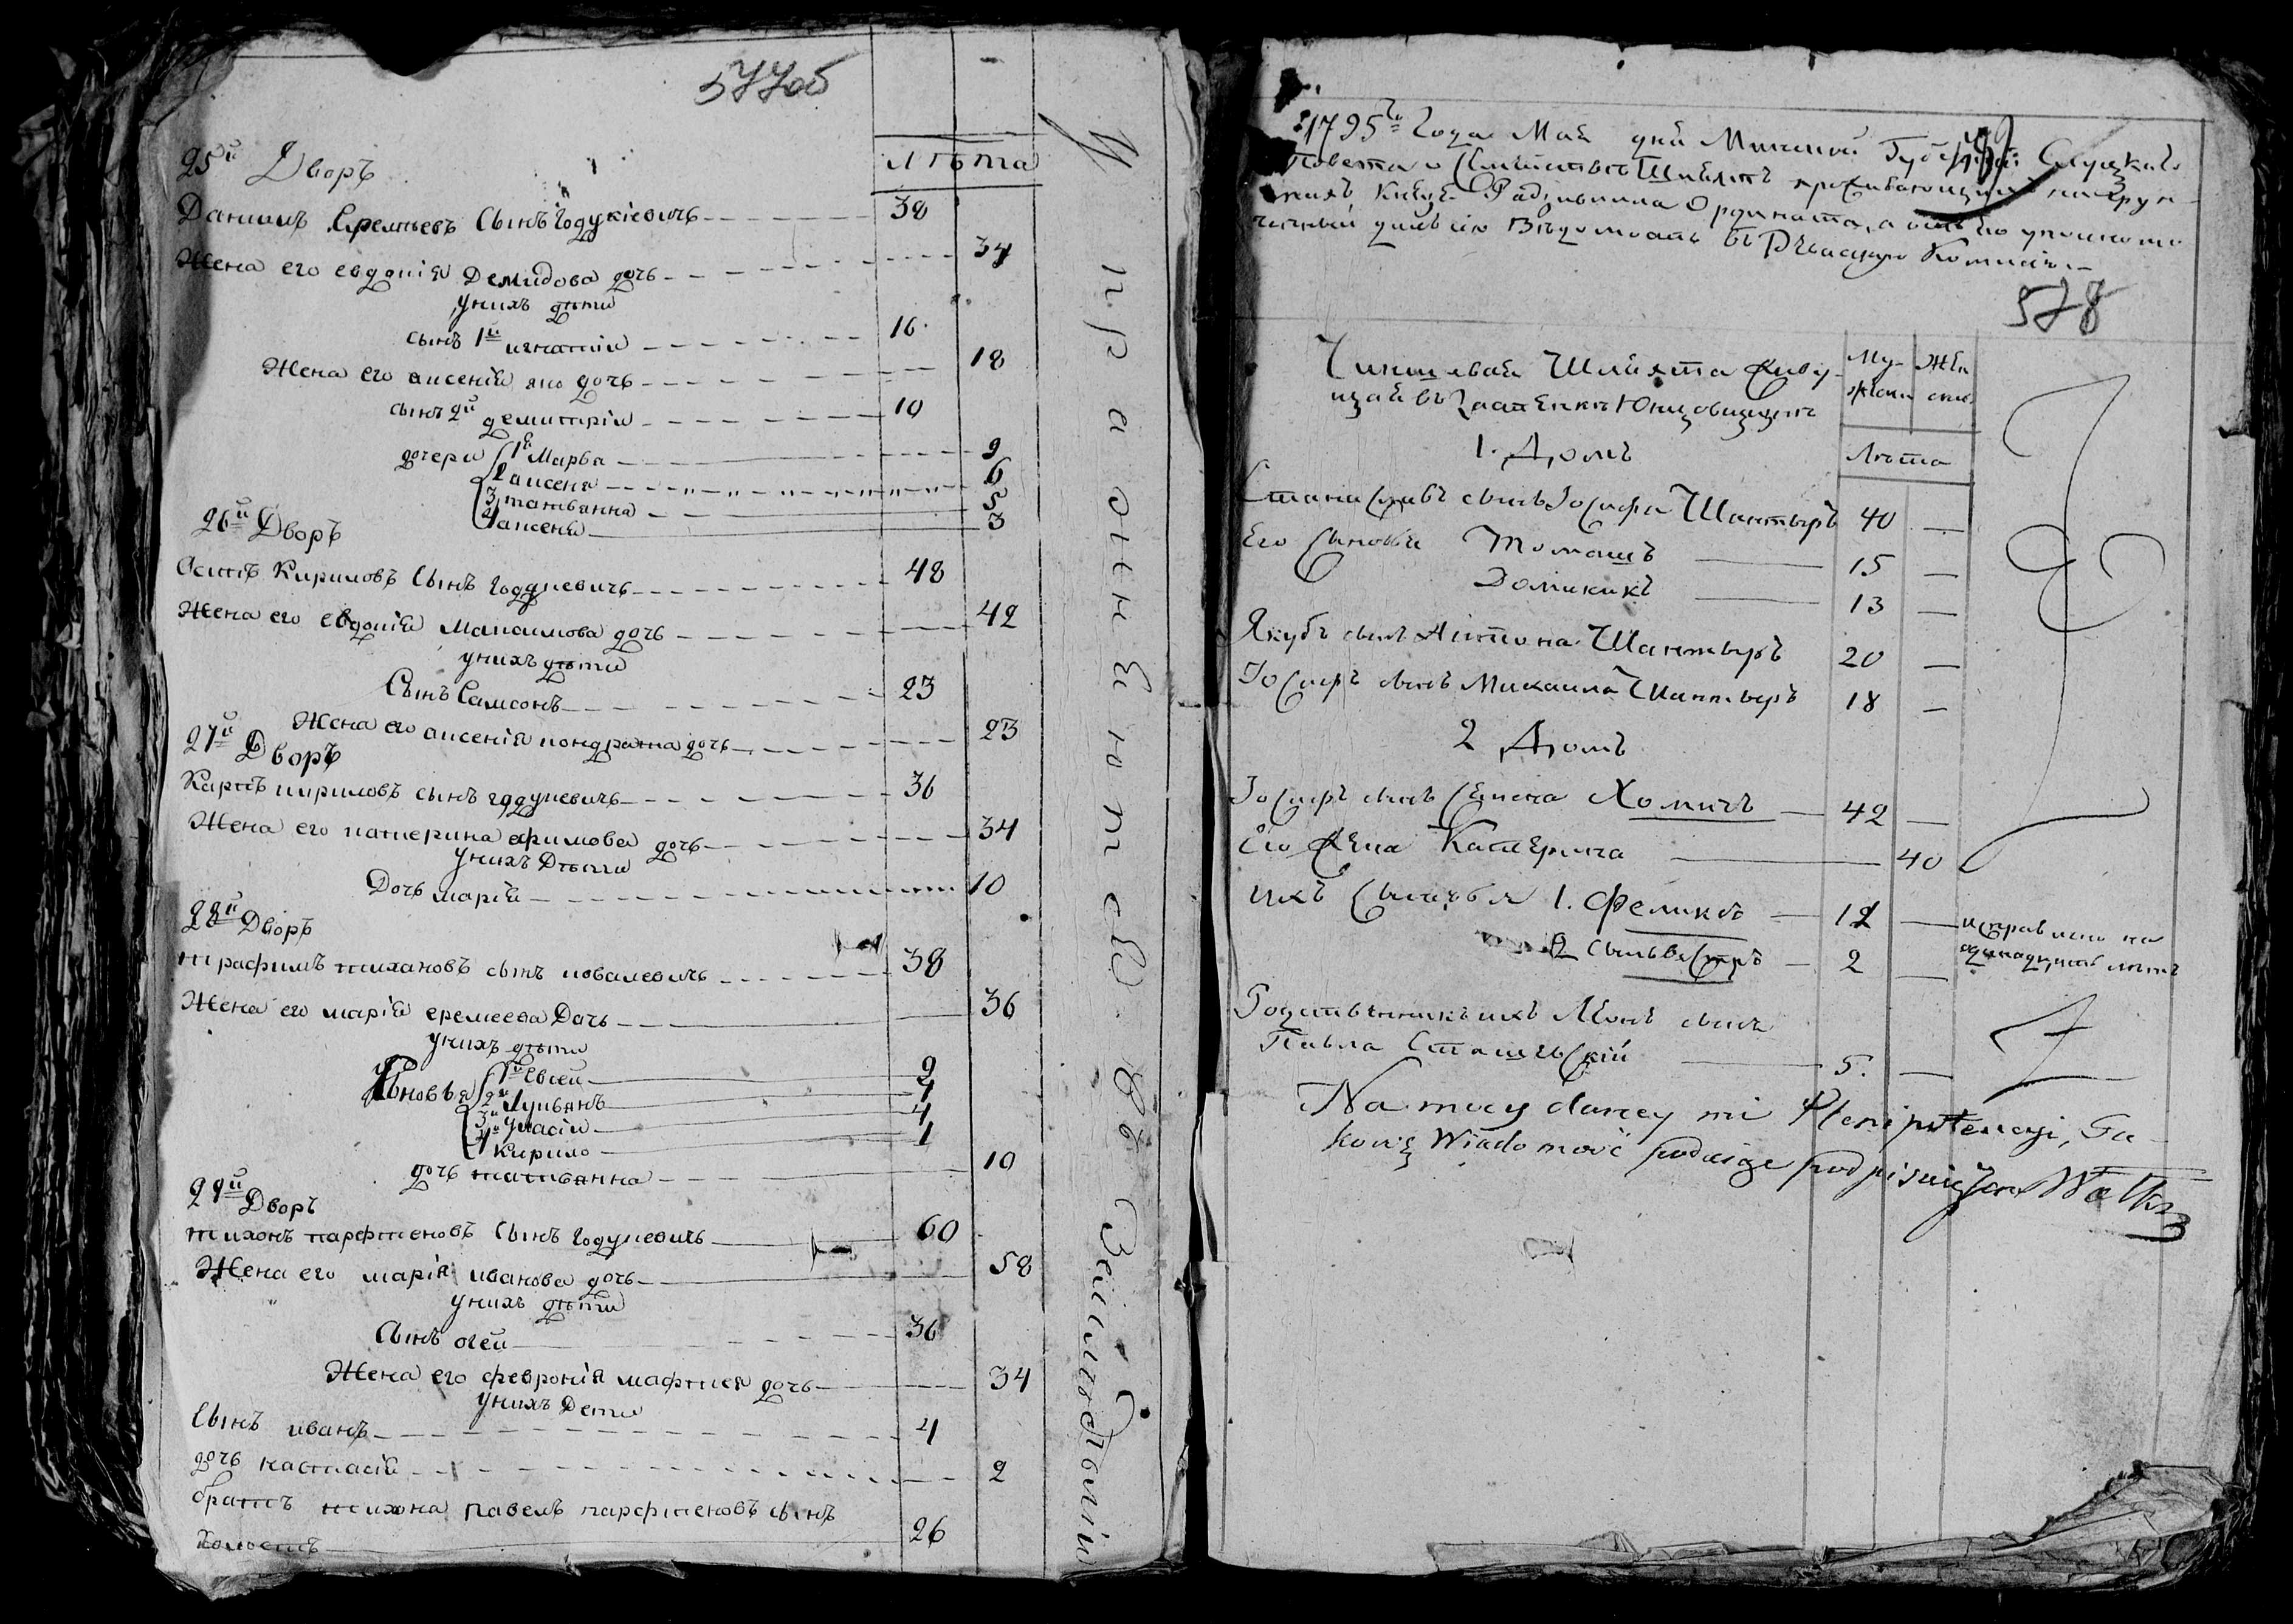 577об
лѣта
25й Дворъ
Данило Еремѣевъ Сынъ Годукіевичъ 38
Жена его евдокія Демидова дочь 34
у нихъ дѣти
сынъ 1й игнатіи 16
Жена его аксенія яко дочь 18
сынъ 2й демитріи 10
дочери 1я Марва 9
2 аксеня 6
3 татьянна 5
4 аксеня 3
26й Дворъ
Осипъ Кириловъ Сынъ годуцевичъ 48
Жена его евдокія максимова дочь 42
у нихъ дѣти
Сынъ Самсонъ 23
Жена его аксенія кондратна дочь 23
27й Дворъ
Карпъ кириловъ сынъ годуцевичъ 36
Жена его катерина ефимова дочь 34
у нихъ Дѣти
Дочь марія 10
28й Дворъ
трафимъ тихановъ сынъ ковалевичъ 38
Жена его марія еремеева Дочь 36
у нихъ дѣти
Сыновья 1й Евсеи 9
2й Лукьянъ 7
3й Уласіи 4
4й Кирило 1
дочь татьянна 10
29й Дворъ
тихонъ парфтеновъ Сынъ Годуцевичъ 60
Жена его марія иванова дочь 58
у нихъ дѣти
Сынъ огеи 36
Жена его февронія мафтиея дочь 34
у нихъ Дети
Сынъ иванъ 4
дочь настасія 2
братъ тихона павелъ парфтеновъ сынъ
холостъ 26
1795го Года Маѣ дня Минской Губерніи Слуцкаго
Повета о Шляхтѣ проживающей на грун
тахъ Князя Радзивилла Ордината, а отъ его упономо
ченный даю сію Вѣдомость въ Рѣвизскую Комисію
578
Чиншевая Шляхта живу-
щая въ Застенкѣ Юшовщизнѣ
Му-
жеска
Жен
ска
Лѣта
1. Домъ
Станиславъ сынъ Іосифа Шантыръ 40 —
Его Сыновья Томашъ 15 —
Доминикъ 13 —
Якубъ сынъ Антона Шантыръ 20 —
Іосифъ сынъ Михаила Шантыръ 18 —
2 Домъ
Іосифъ сынъ Семена Хомичъ 42 —
Его Жена Катерина 40
ихъ Сыновья 1. Феликсъ 12 — исправлено на
одинадцать лѣтъ
2 Сыльвестръ 2 —
Родственникъ ихъ Леонъ сынъ
Павла Сташевскій 5. —
Na mocy daney mi Plenipotencyi, Ta-
kową Wiadomość podaię podpisuię